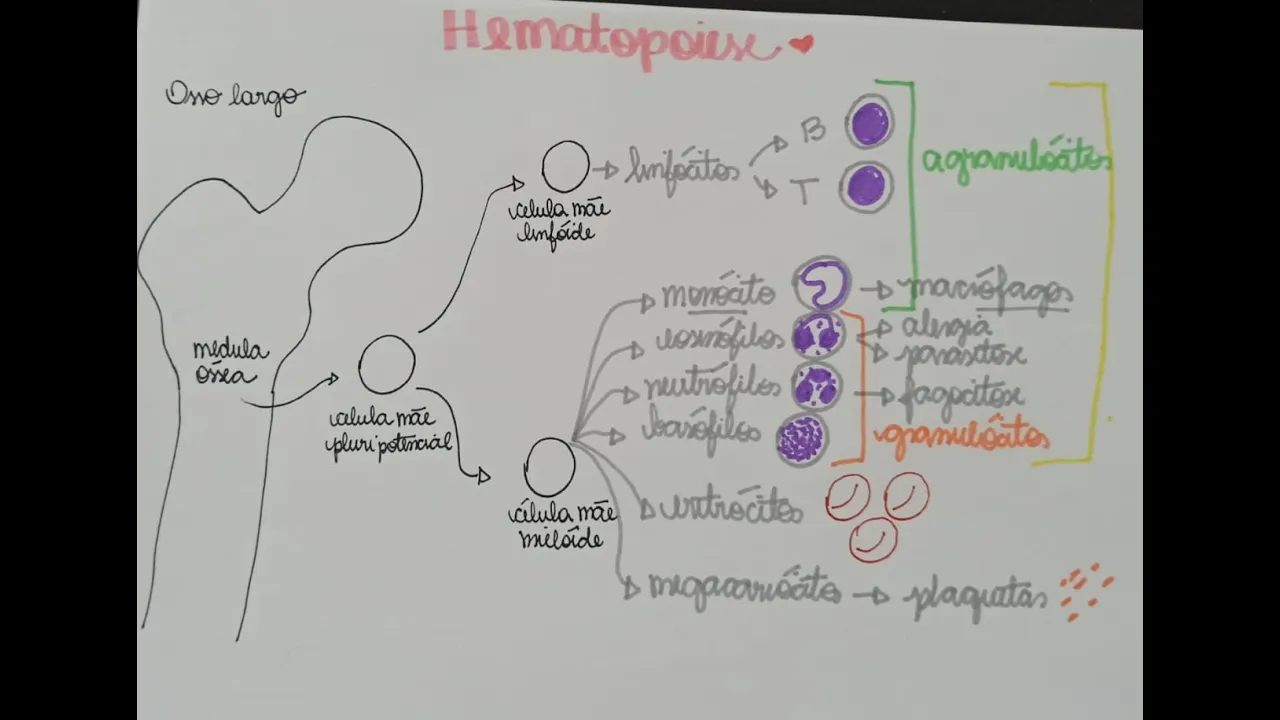 Hematopoiese
Osso largo
célula mãe
linfóide
linfócitos
B
T
agranulócitos
medula
óssea
célula mãe
pluripotencial
célula mãe
mielóide
monócito
macrófagos
eosinófilos
alergia
parasitose
neutrófilos
fagocitose
basófilos
granulócitos
eritrócitos
megacariócitos
plaquetas